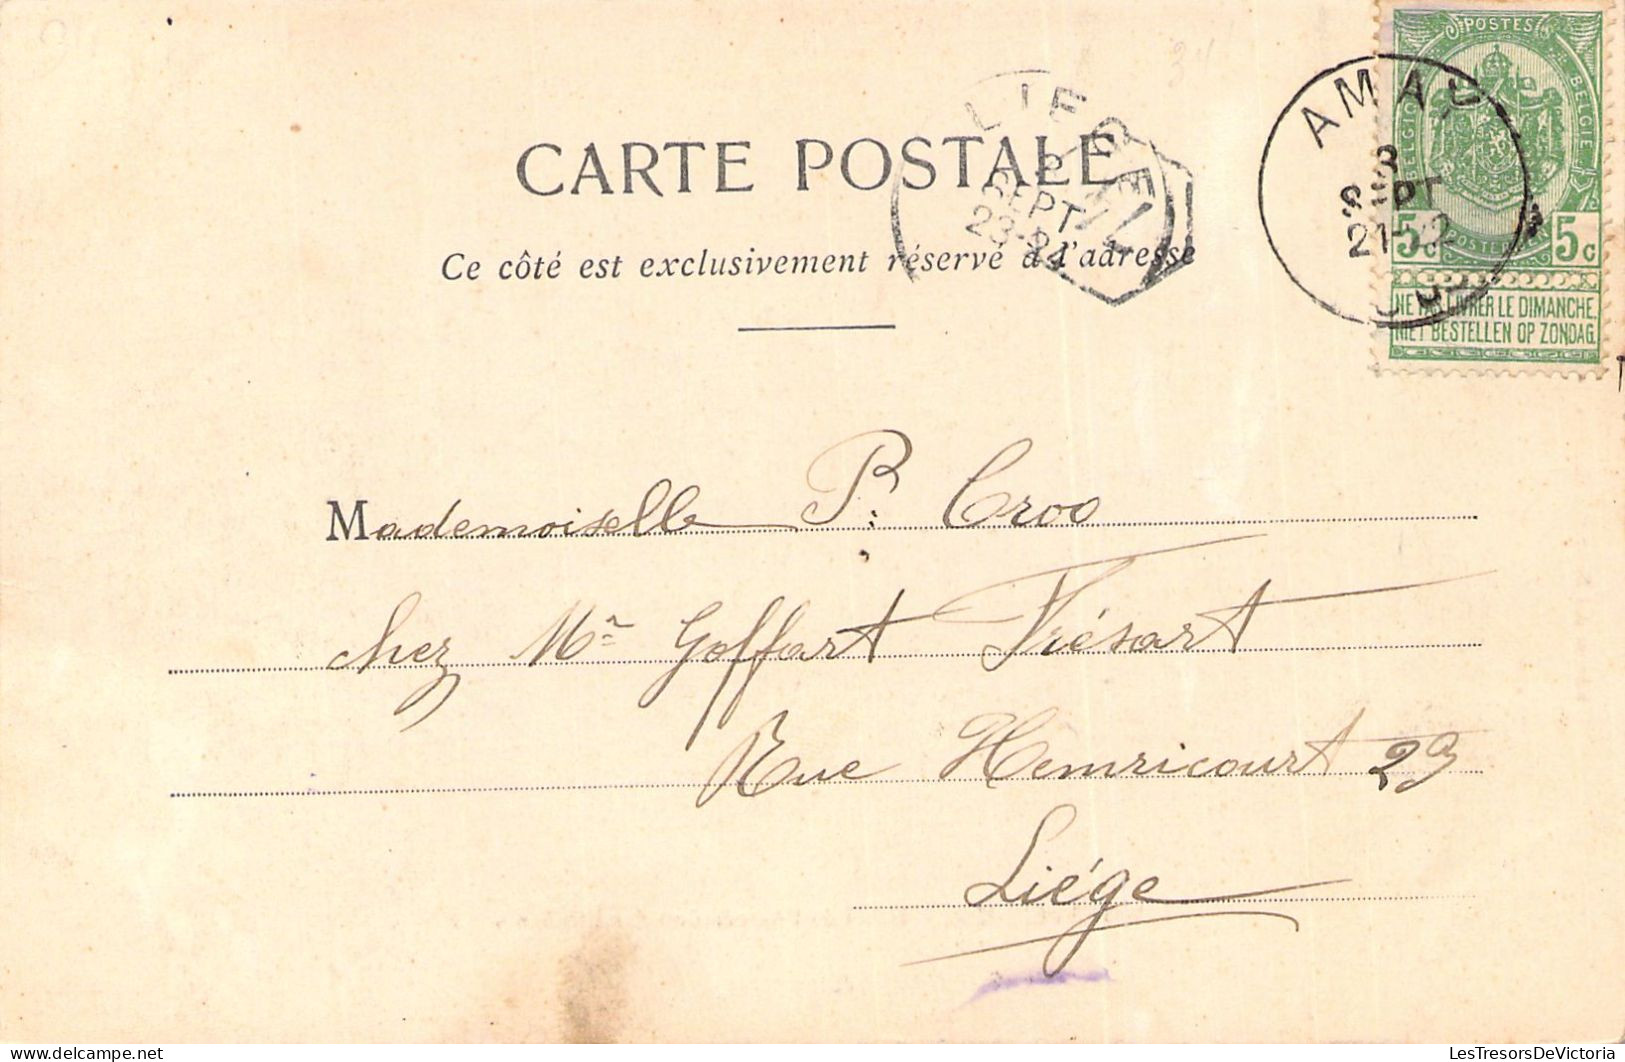 CARTE POSTALE
Ce côté est exclusivement réservé à l'adresse
LIEGE
SEPT
AMAY
8
SEPT
POSTES
BELGIQUE
BELGIE
POSTERIJEN
5c
5c
NE PAS LIVRER LE DIMANCHE.
NIET BESTELLEN OP ZONDAG.
Mademoiselle P. Croo
chez Mr Goffart Trésart
Rue Hemricourt 29
Liége
www.LesTresorsDeVictoria